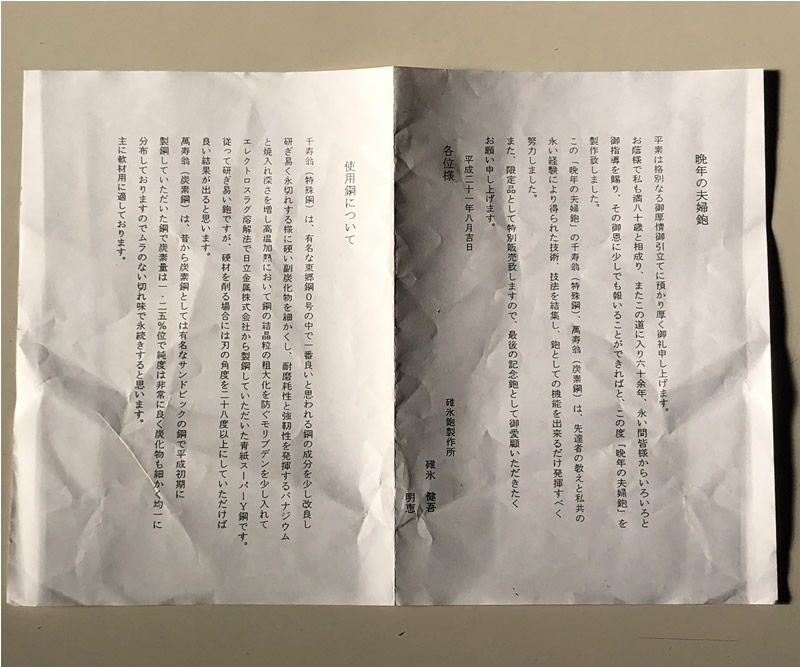 晩年の夫婦鉋
平素は格別なる御厚情御引立てに預かり厚く御礼申し上げます。
お蔭様で私も満八十歳と相成り、またこの道に入り六十余年、永い間皆様からいろいろと
御指導を賜り、その御恩に少しでも報いることができればと、この度「晩年の夫婦鉋」を
製作致しました。
この「晩年の夫婦鉋」の千寿翁（特殊鋼）、萬寿翁（炭素鋼）は、先達者の教えと私共の
永い経験により得られた技術、技法を結集し、鉋としての機能を出来るだけ発揮すべく
努力しました。
また、限定品として特別販売致しますので、最後の記念鉋として御愛顧いただきたく
お願い申し上げます。
平成二十一年八月吉日
各位様
碓氷鉋製作所
碓氷　健吾
明恵
使用鋼について
千寿翁（特殊鋼）は、有名な東郷鋼０号の中で一番良いと思われる鋼の成分を少し改良し
研ぎ易く永切れする様に硬い副炭化物を細かくし、耐磨耗性と強靭性を発揮するバナジウム
と焼入れ深さを増し高温加熱において鋼の結晶粒の粗大化を防ぐモリブデンを少し入れて
エレクトロスラグ溶解法で日立金属株式会社から製鋼していただいた青紙スーパーＹ鋼です。
従って研ぎ易い鉋ですが、硬材を削る場合には刃の角度を二十八度以上にしていただけば
良い結果が出ると思います。
萬寿翁（炭素鋼）は、昔から炭素鋼としては有名なサンドビックの鋼で平成初期に
製鋼していただいた鋼で炭素量は一・二五％位で純度は非常に良く炭化物も細かく均一に
分布しておりますのでムラのない切れ味で永続きすると思います。
主に軟材用に適しております。